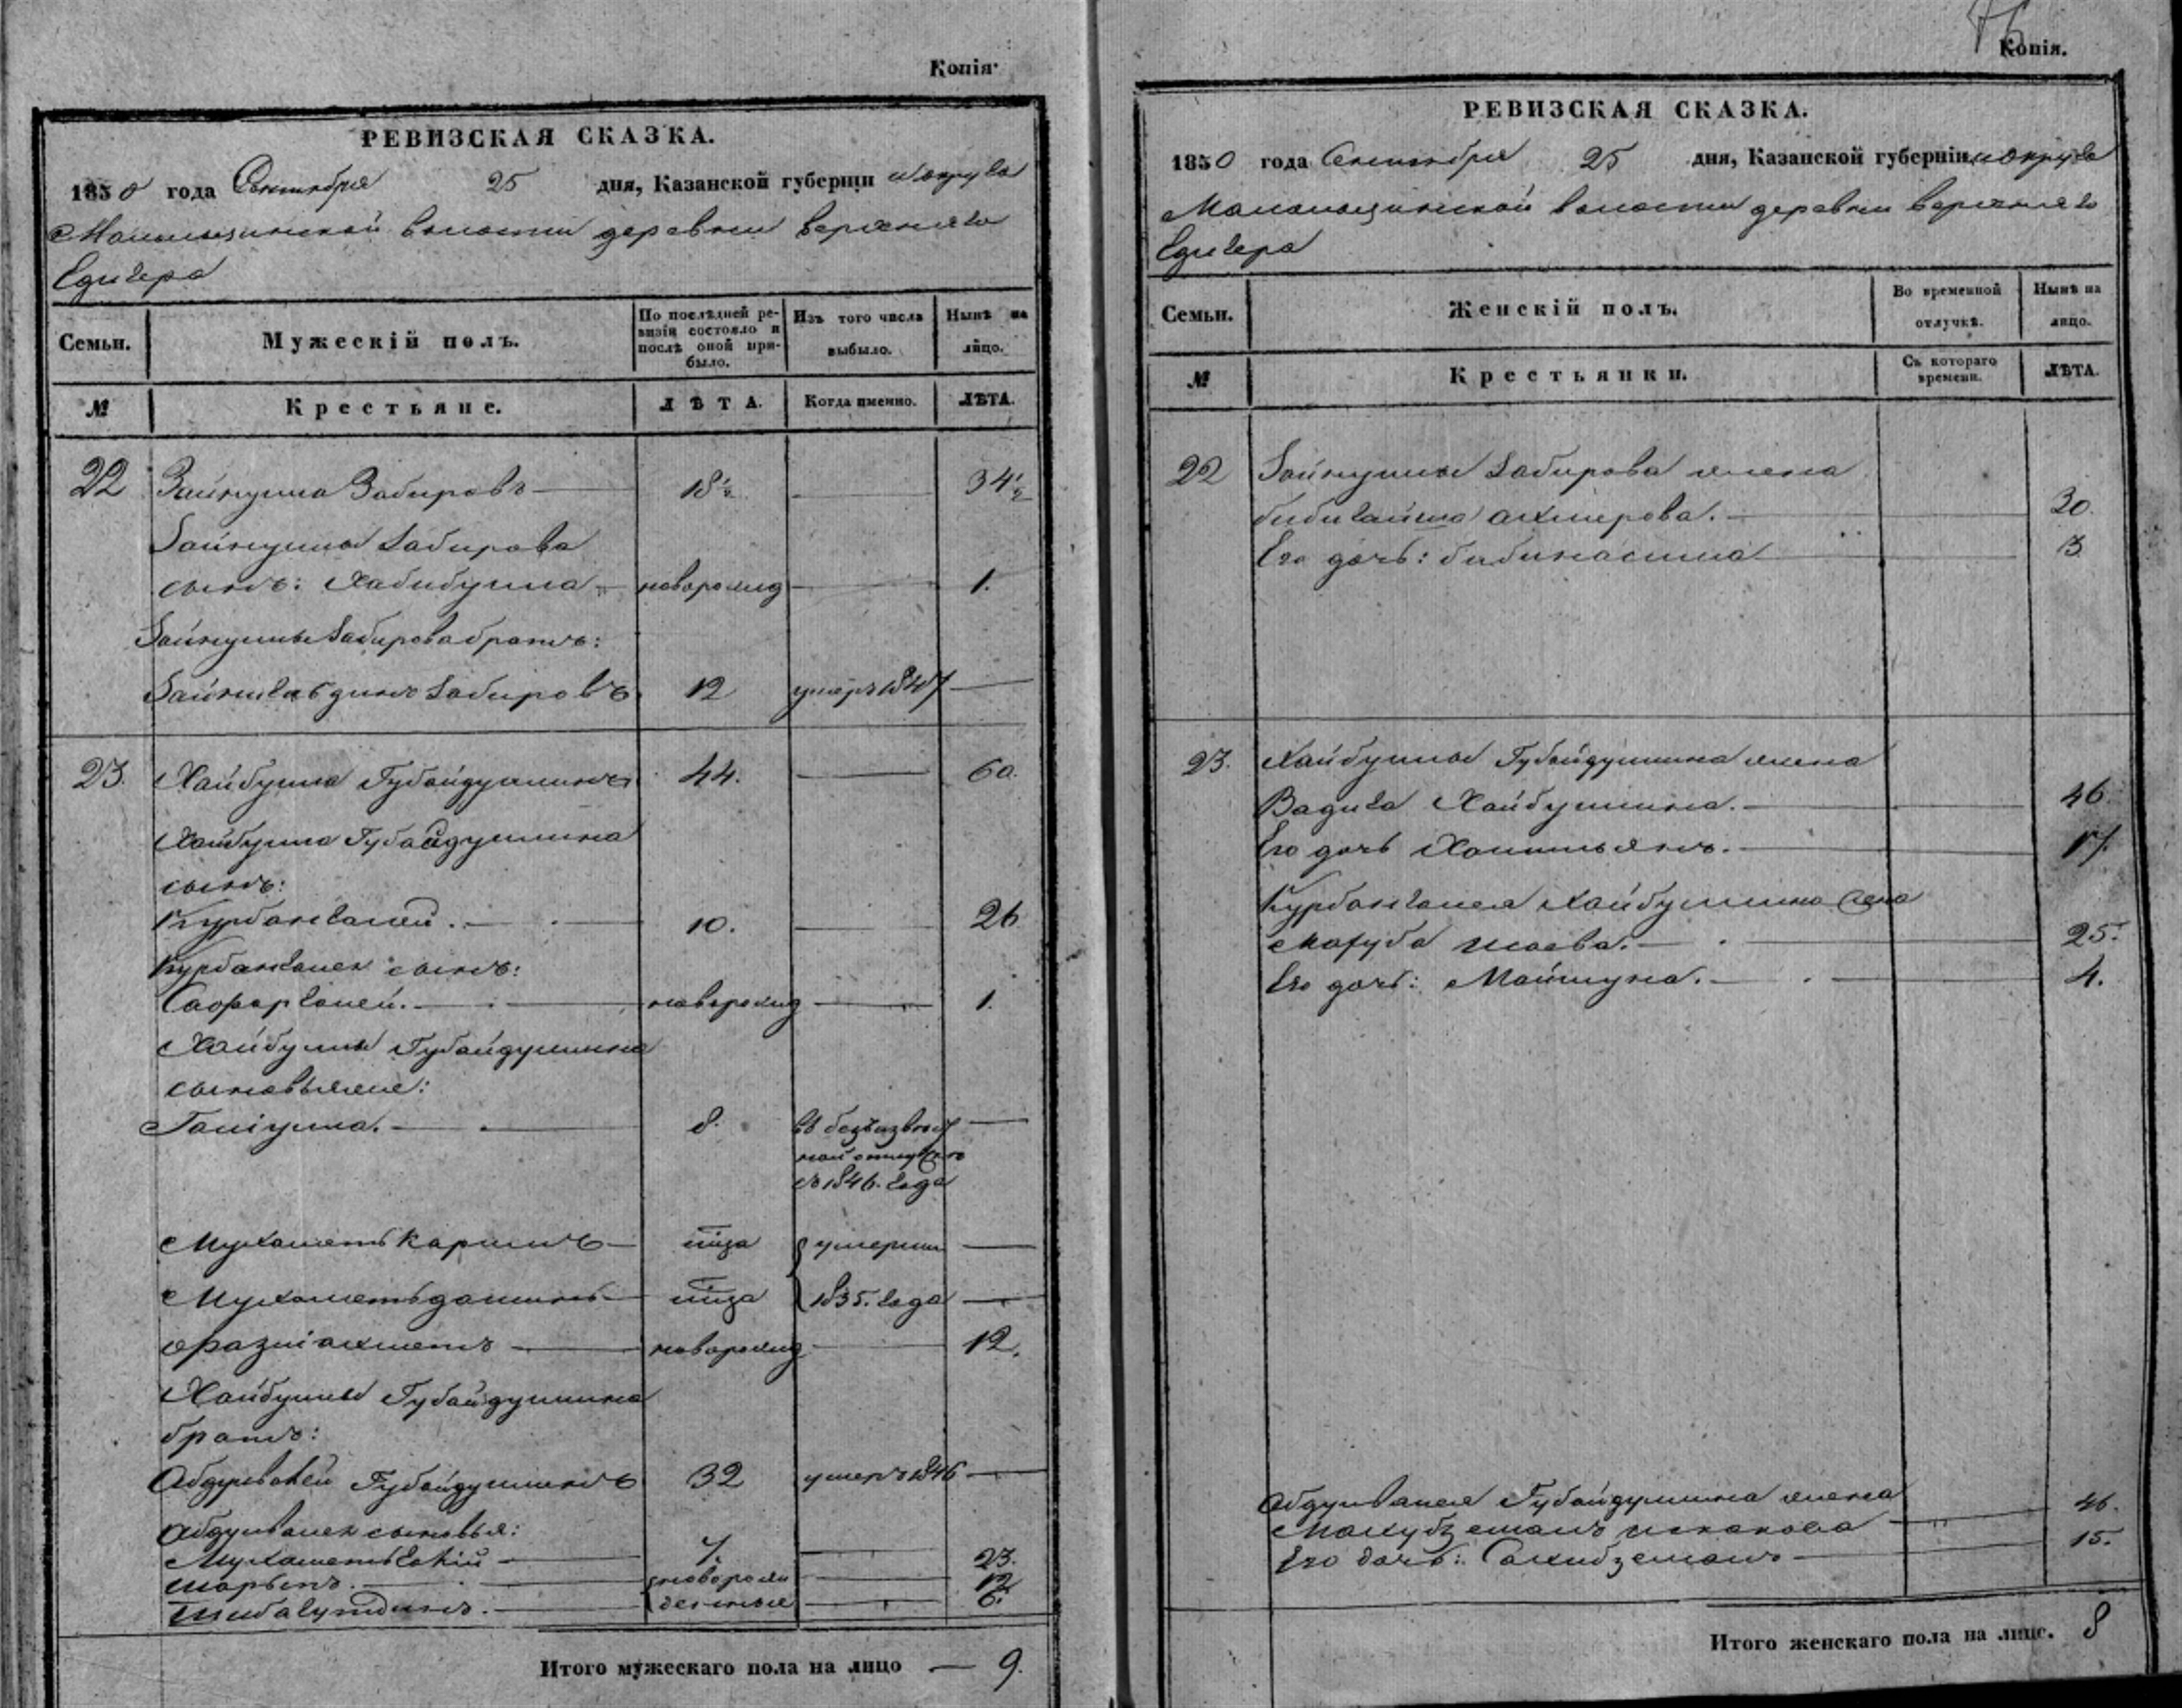 Копія.
РЕВИЗСКАЯ СКАЗКА.
1850 года Сентября 25 дня, Казанской губерніи и округа
волости деревни верхняго
Едигера
Семьи. Мужескій полъ. По послѣдней ревизіи состояло и послѣ оной прибыло. Изъ того числа выбыло. Нынѣ на лицо.
№ Крестьяне. ЛѢТА. Когда именно. ЛѢТА.
22 Зайнулла Забировъ — 18½ — 34½
Зайнуллы Забирова
сынъ: Хабибулла — новорожд — 1.
Зайнуллы Забирова братъ:
Забировъ 12 умеръ 1847 —
23. Хайбулла Губайдуллинъ 44. — 60.
Хайбуллы Губайдуллина
сынъ:
Курбангалей. — 10. — 26
Курбангалея сынъ:
Сафаргалей. — новорожд — 1.
Хайбуллы Губайдуллина
сыновья же:
Галіулла. — 8. въ безъизвѣст —
ной отлучкѣ
съ 1846. года
Мухаметь каримъ — ½ года { умерли —
Мухаметь — ½ года { 1835. года —
Фазліахметъ — новорожд — 12.
Хайбуллы Губайдуллина
братъ:
Абдулвалей Губайдуллинъ 32 умеръ 1846 —
Абдулвалея сыновья:
Мухаметь — 7. — 23.
Шарыпъ. — { новорож — 12
— { денные — 6.
Итого мужескаго пола на лицо — 9.
Копія.
РЕВИЗСКАЯ СКАЗКА.
1850 года Сентября 25 дня, Казанской губерніи, и округа
волости деревни верхняго
Едигера
Семьи. Женскій полъ. Во временной отлучкѣ. Нынѣ на лицо.
№ Крестьянки. Съ котораго времени. ЛѢТА.
22 Зайнуллы Забирова жена
бибигайша — 30.
Его дочь: — 13
23. Хайбуллы Губайдуллина жена
Вадига Хайбуллина. — 46.
Его дочь — 17.
Курбангалея Хайбуллина жена
— 25.
Его дочь: Маймуна. — 4.
Абдулвалея Губайдуллина жена
— 46.
Его дочь: — 15.
Итого женскаго пола на лицо. 8